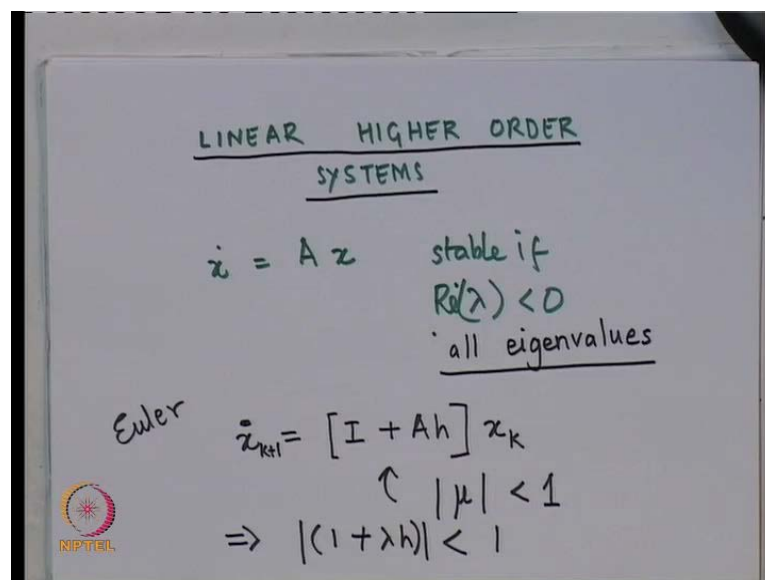 LINEAR HIGHER ORDER
SYSTEMS
ẋ = A x stable if
Re(λ) < 0
all eigenvalues
Euler ẋₖ₊₁ = [I + Ah] xₖ
↑ |μ| < 1
⇒ |(1 + λh)| < 1
NPTEL